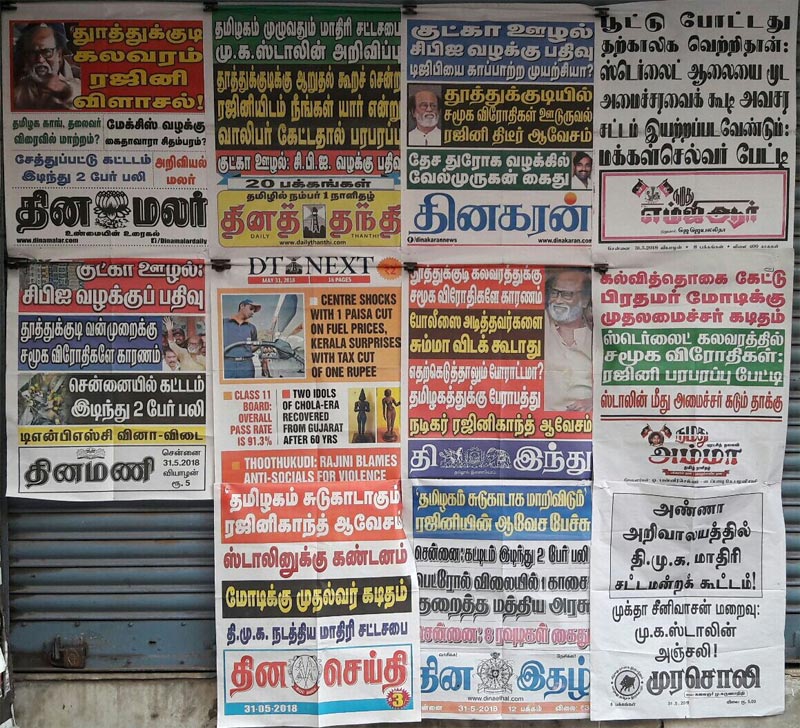 'தூத்துக்குடி
கலவரம்
ரஜினி
விளாசல்!
தமிழக காங். தலைவர்
விரைவில் மாற்றம்?
மேக்சிஸ் வழக்கு
கைதாவாரா சிதம்பரம்?
சேத்துப்பட்டு கட்டடம்
இடிந்து 2 பேர் பலி
அறிவியல்
மலர்
தின மலர்
உண்மையின் உரைகல்
www.dinamalar.com
/Dinamalardaily
தமிழகம் முழுவதும் மாதிரி சட்டசபை
மு.க.ஸ்டாலின் அறிவிப்பு
தூத்துக்குடிக்கு ஆறுதல் கூறச் சென்ற
ரஜினியிடம் நீங்கள் யார் என்று
வாலிபர் கேட்டதால் பரபரப்பு
குட்கா ஊழல்: சி.பி.ஐ. வழக்கு பதிவு
20 பக்கங்கள்
தமிழில் நம்பர் 1 நாளிதழ்
தினத் தந்தி
DAILY THANTHI
www.dailythanthi.com
குட்கா ஊழல்
சிபிஐ வழக்கு பதிவு
டிஜிபியை காப்பாற்ற முயற்சியா?
தூத்துக்குடியில்
சமூக விரோதிகள் ஊடுருவல்
ரஜினி திடீர் ஆவேசம்
தேச துரோக வழக்கில்
வேல்முருகன் கைது
தினகரன்
/dinakarannews
www.dinakaran.com
பூட்டு போட்டது
தற்காலிக வெற்றிதான்:
ஸ்டெர்லைட் ஆலையை மூட
அமைச்சரவைக் கூடி அவசர
சட்டம் இயற்றப்படவேண்டும்:
மக்கள்செல்வர் பேட்டி
நமது
எம்ஜிஆர்
சென்னை 31.5.2018 வியாழன்
குட்கா ஊழல்:
சிபிஐ வழக்குப் பதிவு
தூத்துக்குடி வன்முறைக்கு
சமூக விரோதிகளே காரணம்
சென்னையில் கட்டடம்
இடிந்து 2 பேர் பலி
டிஎன்பிஎஸ்சி வினா-விடை
தினமணி
சென்னை
31.5.2018
வியாழன்
ரூ. 5
DT NEXT
MAY 31, 2018
16 PAGES
CENTRE SHOCKS
WITH 1 PAISA CUT
ON FUEL PRICES,
KERALA SURPRISES
WITH TAX CUT
OF ONE RUPEE
CLASS 11
BOARD:
OVERALL
PASS RATE
IS 91.3%
TWO IDOLS
OF CHOLA-ERA
RECOVERED
FROM GUJARAT
AFTER 60 YRS
THOOTHUKUDI: RAJINI BLAMES
ANTI-SOCIALS FOR VIOLENCE
தூத்துக்குடி கலவரத்துக்கு
சமூக விரோதிகளே காரணம்
போலீஸை அடித்தவர்களை
சும்மா விடக் கூடாது
எதற்கெடுத்தாலும் போராட்டமா?
தமிழகத்துக்கு பேராபத்து
நடிகர் ரஜினிகாந்த் ஆவேசம்
தி இந்து
கல்வித்தொகை கேட்டு
பிரதமர் மோடிக்கு
முதலமைச்சர் கடிதம்
ஸ்டெர்லைட் கலவரத்தில்
சமூக விரோதிகள்:
ரஜினி பரபரப்பு பேட்டி
ஸ்டாலின் மீது அமைச்சர் கடும் தாக்கு
நமது
அம்மா
'தமிழகம் சுடுகாடாகும்'
ரஜினிகாந்த் ஆவேசம்
ஸ்டாலினுக்கு கண்டனம்
மோடிக்கு முதல்வர் கடிதம்
தி.மு.க. நடத்திய மாதிரி சட்டசபை
தின செய்தி
31-05-2018
3
'தமிழகம் சுடுகாடாக மாறிவிடும்'
ரஜினியின் ஆவேச பேச்சு
சென்னை:கட்டிடம் இடிந்து 2 பேர் பலி
பெட்ரோல் விலையில் 1 காசை
குறைத்த மத்திய அரசு
சென்னை: 8 ரவுடிகள் கைது
தின இதழ்
www.dinaethal.com
சென்னை 31-5-2018 12 பக்கம்
அண்ணா
அறிவாலயத்தில்
தி.மு.க. மாதிரி
சட்டமன்றக் கூட்டம்!
முக்தா சீனிவாசன் மறைவு:
மு.க.ஸ்டாலின்
அஞ்சலி!
முரசொலி
31.5.2018